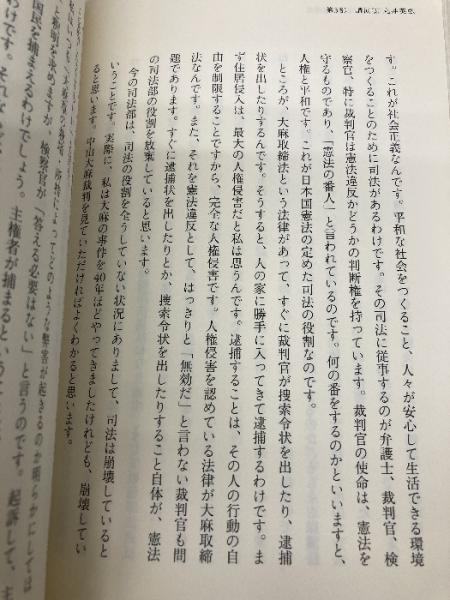 す。これが社会正義なんです。平和な社会をつくること、人々が安心して生活できる環境
をつくることのために司法があるわけです。その司法に従事するのが弁護士、裁判官、検
察官、特に裁判官は憲法違反かどうかの判断権を持っています。裁判官の使命は、憲法を
守るものであり、「憲法の番人」と言われているのです。何の番をするのかといいますと、
人権と平和です。これが日本国憲法の定めた司法の役割なのです。
ところが、大麻取締法という法律があって、すぐに裁判官が捜索令状を出したり、逮捕
状を出したりするんです。そうすると、人の家に勝手に入ってきて逮捕するわけです。ま
ず住居侵入は、最大の人権侵害だと私は思うんです。逮捕することは、その人の行動の自
由を制限することですから、完全な人権侵害です。人権侵害を認めている法律が大麻取締
法なんです。また、それを憲法違反として、はっきりと「無効だ」と言わない裁判官も問
題であります。すぐに逮捕状を出したりとか、捜索令状を出したりすること自体が、憲法
の司法部の役割を放棄していると思います。
今の司法部は、司法の役割を全うしていない状況にありまして、司法は崩壊していると
いうことです。実際に、私は大麻の事件を40年ほどやってきましたけれども、崩壊してい
ると思います。中山大麻裁判を見ていただければよくわかると思います。
のような弊害が起きるのか明らかにしては
と釈明を求めますが、検察官が「答える必要はない」と言うのです。起訴して、
国民を捕まえるわけでしょう。主権者が捕まるという
わけです。それな